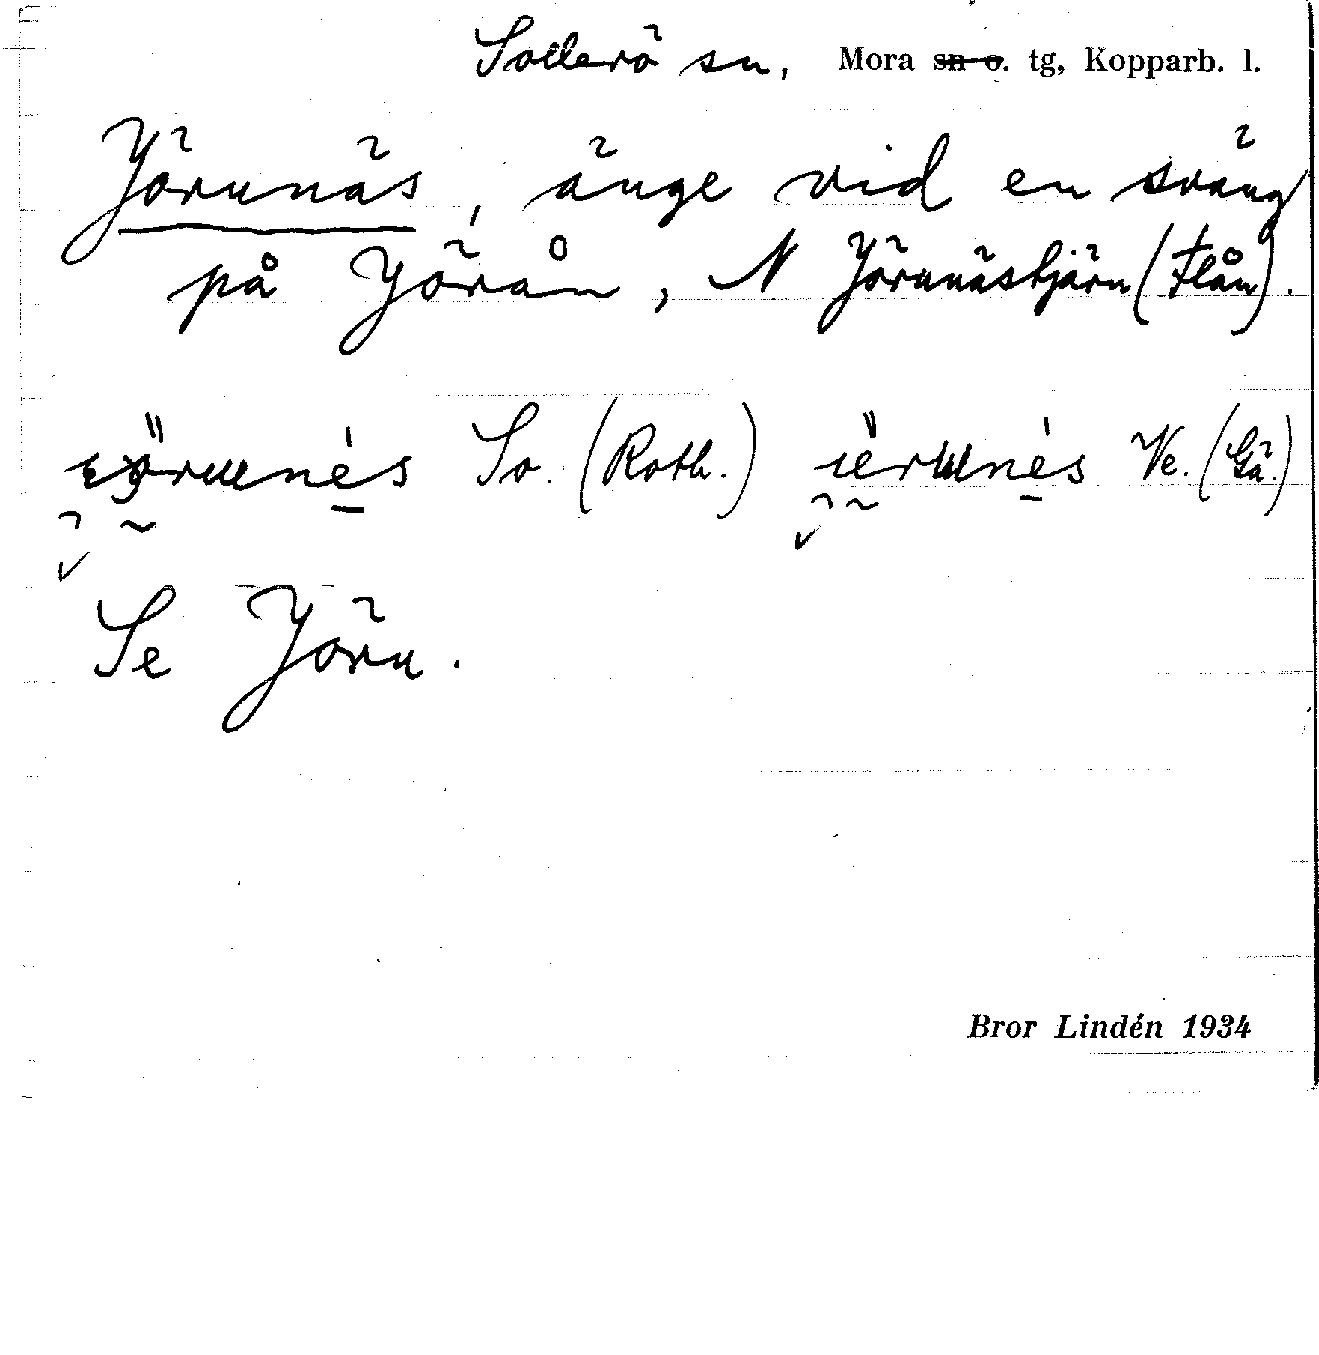 Sollerö sn, Mora sn o. tg, Kopparb. l.
Jörunäs, änge vid en sväng
på Jörån, N Jörunästjärn (Flån).
So. (Roth.) Ve. (Gä.)
Se Jöru.
Bror Lindén 1934